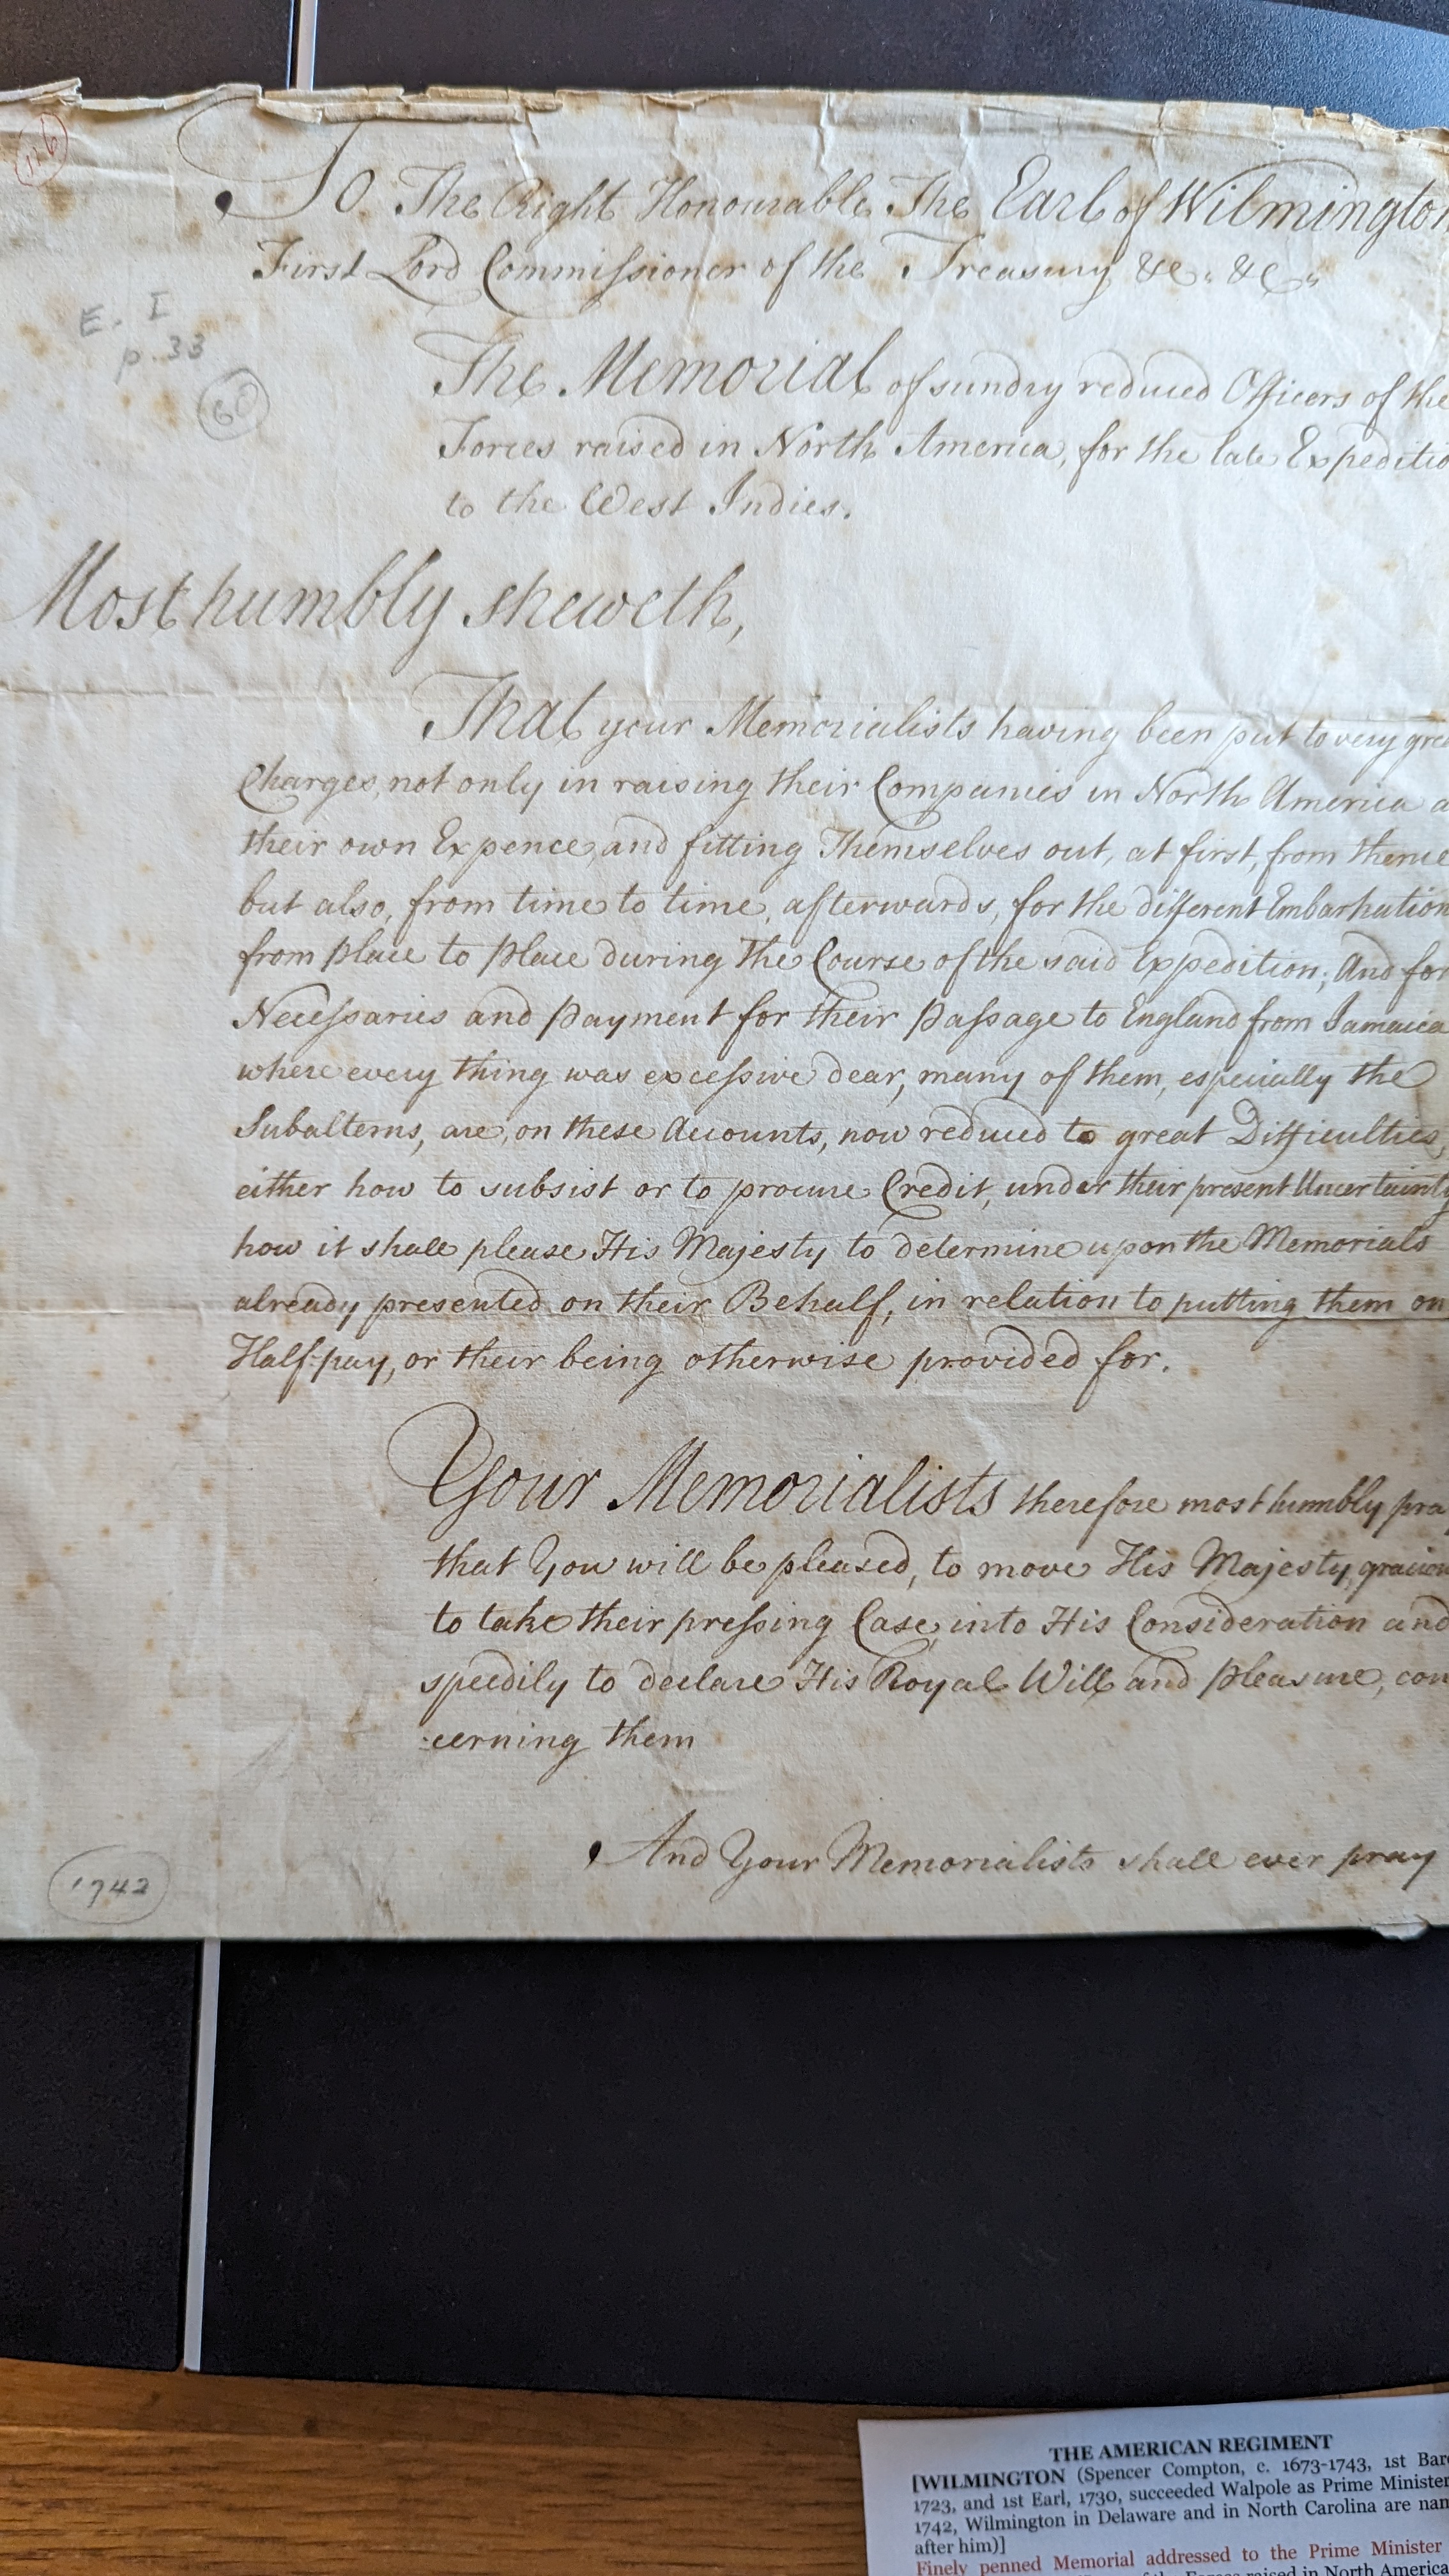 116
To The Right Honourable The Earl of Wilmington
First Lord Commissioner of the Treasury &c. &c.
E. I
p. 33
60
The Memorial of sundry reduced Officers of the
Forces raised in North America, for the late Expeditio
to the West Indies.
Most humbly sheweth,
That your Memorialists having been put to very gre
Charges, not only in raising their Companies in North America a
their own Expence, and fitting Themselves out, at first, from thence
but also, from time to time, afterwards, for the different Embarkation
from place to place during the Course of the said Expedition; And for
Necessaries and payment for their passage to England from Jamaica
where every thing was excessive dear, many of them, especially the
Subalterns, are, on these Accounts, now reduced to great Difficulties,
either how to subsist or to procure Credit, under their present Uncertainty
how it shall please His Majesty to determine upon the Memorials
already presented on their Behalf, in relation to putting them on
Half-pay, or their being otherwise provided for.
Your Memorialists therefore most humbly pray
that You will be pleased, to move His Majesty, graciou
to take their pressing Case, into His Consideration and
speedily to declare His Royal Will and pleasure, con
:cerning them
And Your Memorialists shall ever pray
1742
THE AMERICAN REGIMENT
[WILMINGTON (Spencer Compton, c. 1673-1743, 1st Baro
1723, and 1st Earl, 1730, succeeded Walpole as Prime Minister
1742, Wilmington in Delaware and in North Carolina are nam
after him)]
Finely penned Memorial addressed to the Prime Minister
of the Forces raised in North America